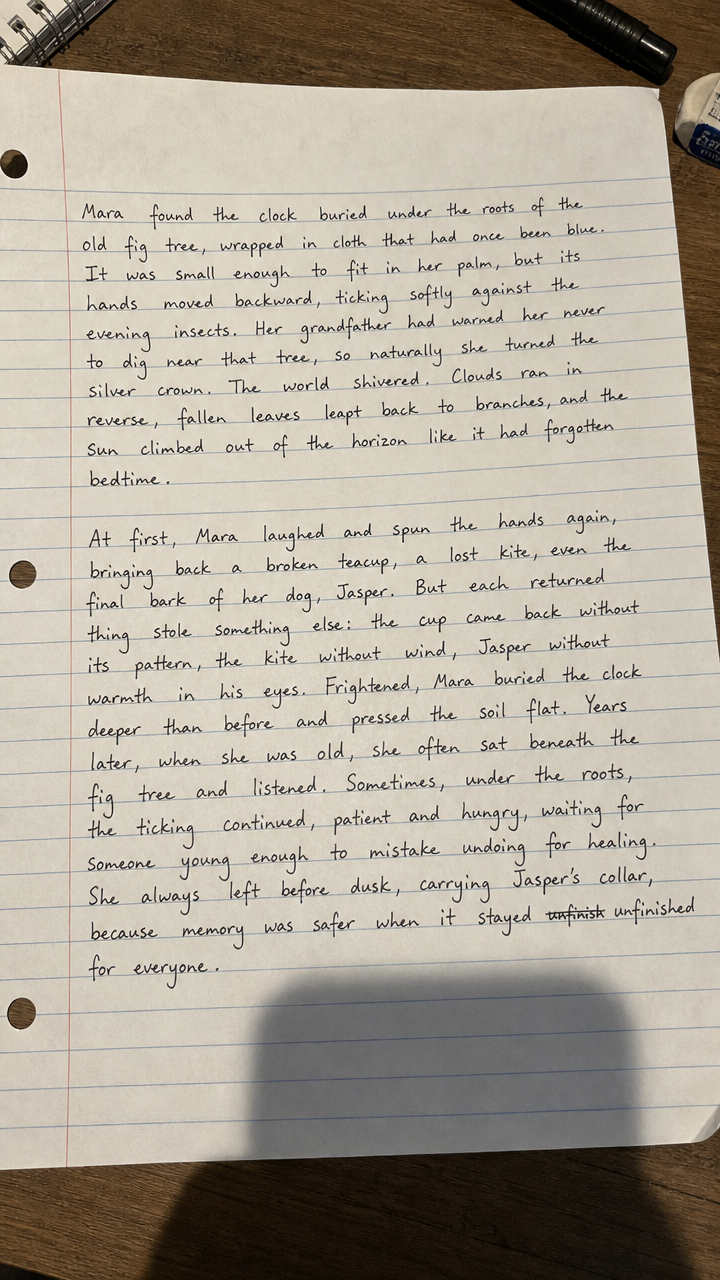 Mara found the clock buried under the roots of the
old fig tree, wrapped in cloth that had once been blue.
It was small enough to fit in her palm, but its
hands moved backward, ticking softly against the
evening insects. Her grandfather had warned her never
to dig near that tree, so naturally she turned the
silver crown. The world shivered. Clouds ran in
reverse, fallen leaves leapt back to branches, and the
sun climbed out of the horizon like it had forgotten
bedtime.
At first, Mara laughed and spun the hands again,
bringing back a broken teacup, a lost kite, even the
final bark of her dog, Jasper. But each returned
thing stole something else: the cup came back without
its pattern, the kite without wind, Jasper without
warmth in his eyes. Frightened, Mara buried the clock
deeper than before and pressed the soil flat. Years
later, when she was old, she often sat beneath the
fig tree and listened. Sometimes, under the roots,
the ticking continued, patient and hungry, waiting for
someone young enough to mistake undoing for healing.
She always left before dusk, carrying Jasper's collar,
because memory was safer when it stayed unfinish unfinished
for everyone.